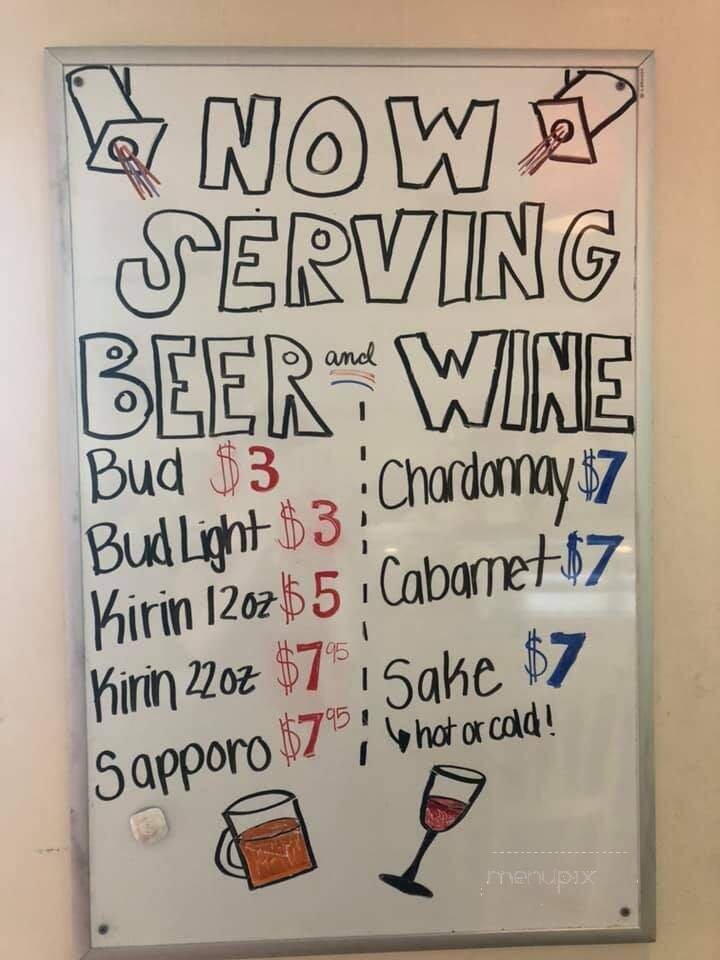 NOW
SERVING
BEER and WINE
Bud $3
Bud Light $3
Kirin 12oz $5
Kirin 22oz $7.95
Sapporo $7.95
Chardonnay $7
Cabarnet $7
Sake $7
↳ hot or cold!
menupix